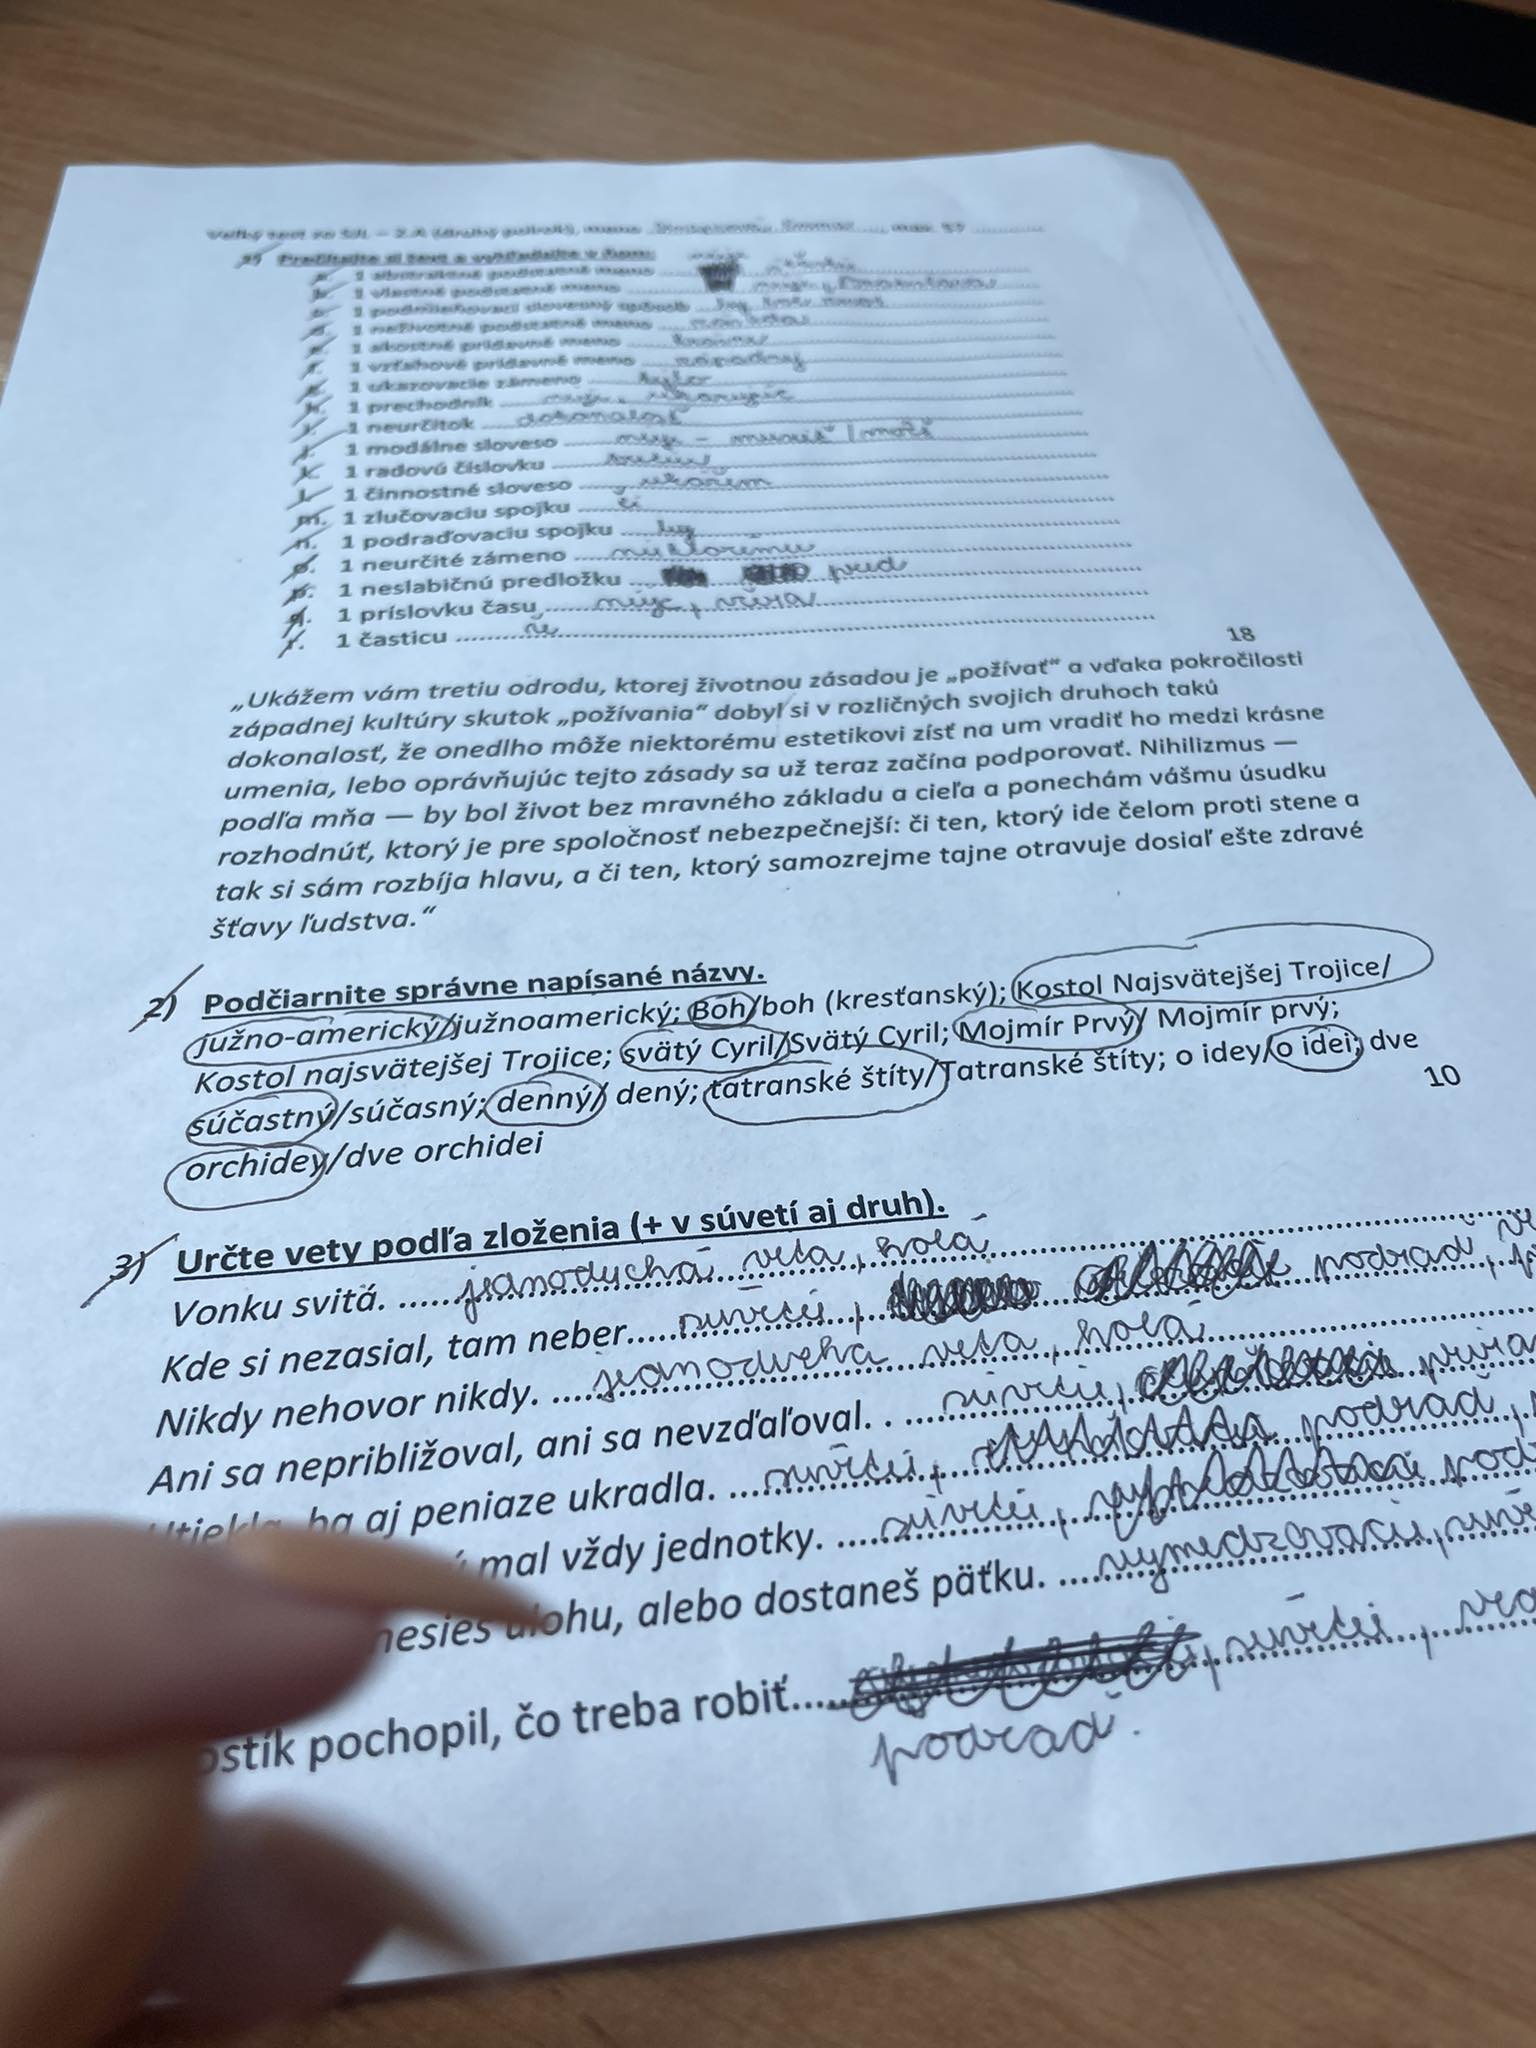 Veľký test zo SJL – 2.A (druhý polrok), meno
1) Prečítajte si text a vyhľadajte v ňom:
a. 1 abstraktné podstatné meno
b. 1 vlastné podstatné meno nieje,
c. 1 podmieňovací slovesný spôsob by
d. 1 neživotné podstatné meno
e. 1 akostné prídavné meno krásne
f. 1 vzťahové prídavné meno západnej
g. 1 ukazovacie zámeno tejto
h. 1 prechodník nieje,
i. 1 neurčitok dokonalosť
j. 1 modálne sloveso nieje – musieť / môcť
k. 1 radovú číslovku tretiu
l. 1 činnostné sloveso ukážem
m. 1 zlučovaciu spojku či
n. 1 podraďovaciu spojku by
o. 1 neurčité zámeno niektorému
p. 1 neslabičnú predložku pred
q. 1 príslovku času nieje, včera
r. 1 časticu že
18
„Ukážem vám tretiu odrodu, ktorej životnou zásadou je „požívať“ a vďaka pokročilosti
západnej kultúry skutok „požívania“ dobyl si v rozličných svojich druhoch takú
dokonalosť, že onedlho môže niektorému estetikovi zísť na um vradiť ho medzi krásne
umenia, lebo oprávňujúc tejto zásady sa už teraz začína podporovať. Nihilizmus —
podľa mňa — by bol život bez mravného základu a cieľa a ponechám vášmu úsudku
rozhodnúť, ktorý je pre spoločnosť nebezpečnejší: či ten, ktorý ide čelom proti stene a
tak si sám rozbíja hlavu, a či ten, ktorý samozrejme tajne otravuje dosiaľ ešte zdravé
šťavy ľudstva.“
2) Podčiarnite správne napísané názvy.
južno-americký/južnoamerický; Boh/boh (kresťanský); Kostol Najsvätejšej Trojice/
Kostol najsvätejšej Trojice; svätý Cyril/Svätý Cyril; Mojmír Prvý/ Mojmír prvý;
súčastný/súčasný; denný/ dený; tatranské štíty/Tatranské štíty; o idey/o idei; dve
orchidey/dve orchidei
10
3) Určte vety podľa zloženia (+ v súvetí aj druh).
Vonku svitá. jednoduchá veta, holá
Kde si nezasial, tam neber. súvetie, podraď
Nikdy nehovor nikdy. jednoducha veta, holá
Ani sa nepribližoval, ani sa nevzďaľoval. súvetie,
ba aj peniaze ukradla. súvetie, podraď,
mal vždy jednotky. súvetie,
nesieš úlohu, alebo dostaneš päťku. vymedzovacie,
ostík pochopil, čo treba robiť. , súvetie,
podraď.